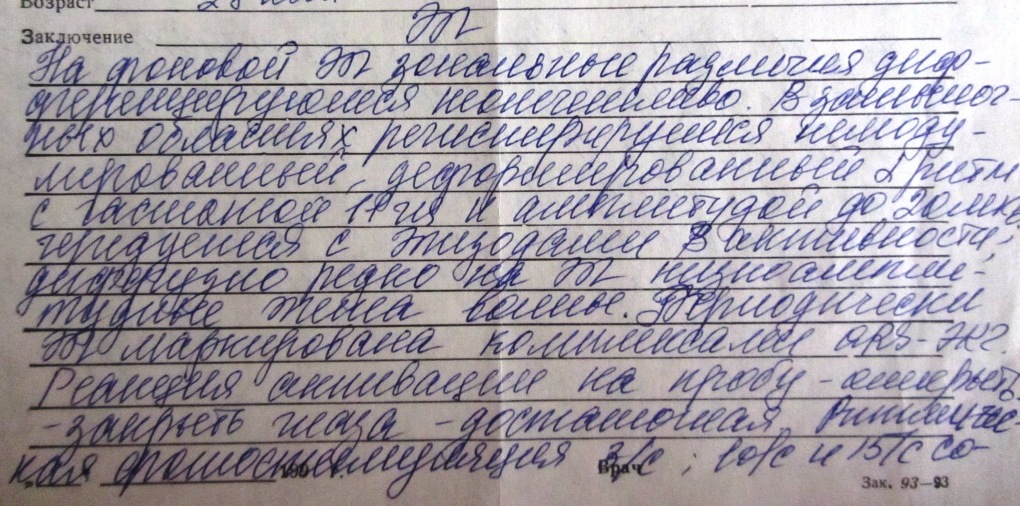 Возраст
Заключение ЭЭГ
На фоновой ЭЭГ зональные различия диф-
ференцируются неотчетливо. В затылоч-
ных областях регистрируется немоду-
лированный, деформированный α ритм
с частотой гц и амплитудой до 20 мкв,
чередуется с эпизодами β активности,
диффузно редко на ЭЭГ низкоампли-
тудные тета волны. Периодически
ЭЭГ маркирована комплексами QRS-ЭКГ.
Реакция активации на пробу - открыть
-закрыть глаза - достаточная. Ритмичес-
кая фотостимуляция 3/с; 10/с и 15/с со-
г. Врач
Зак. 93—93